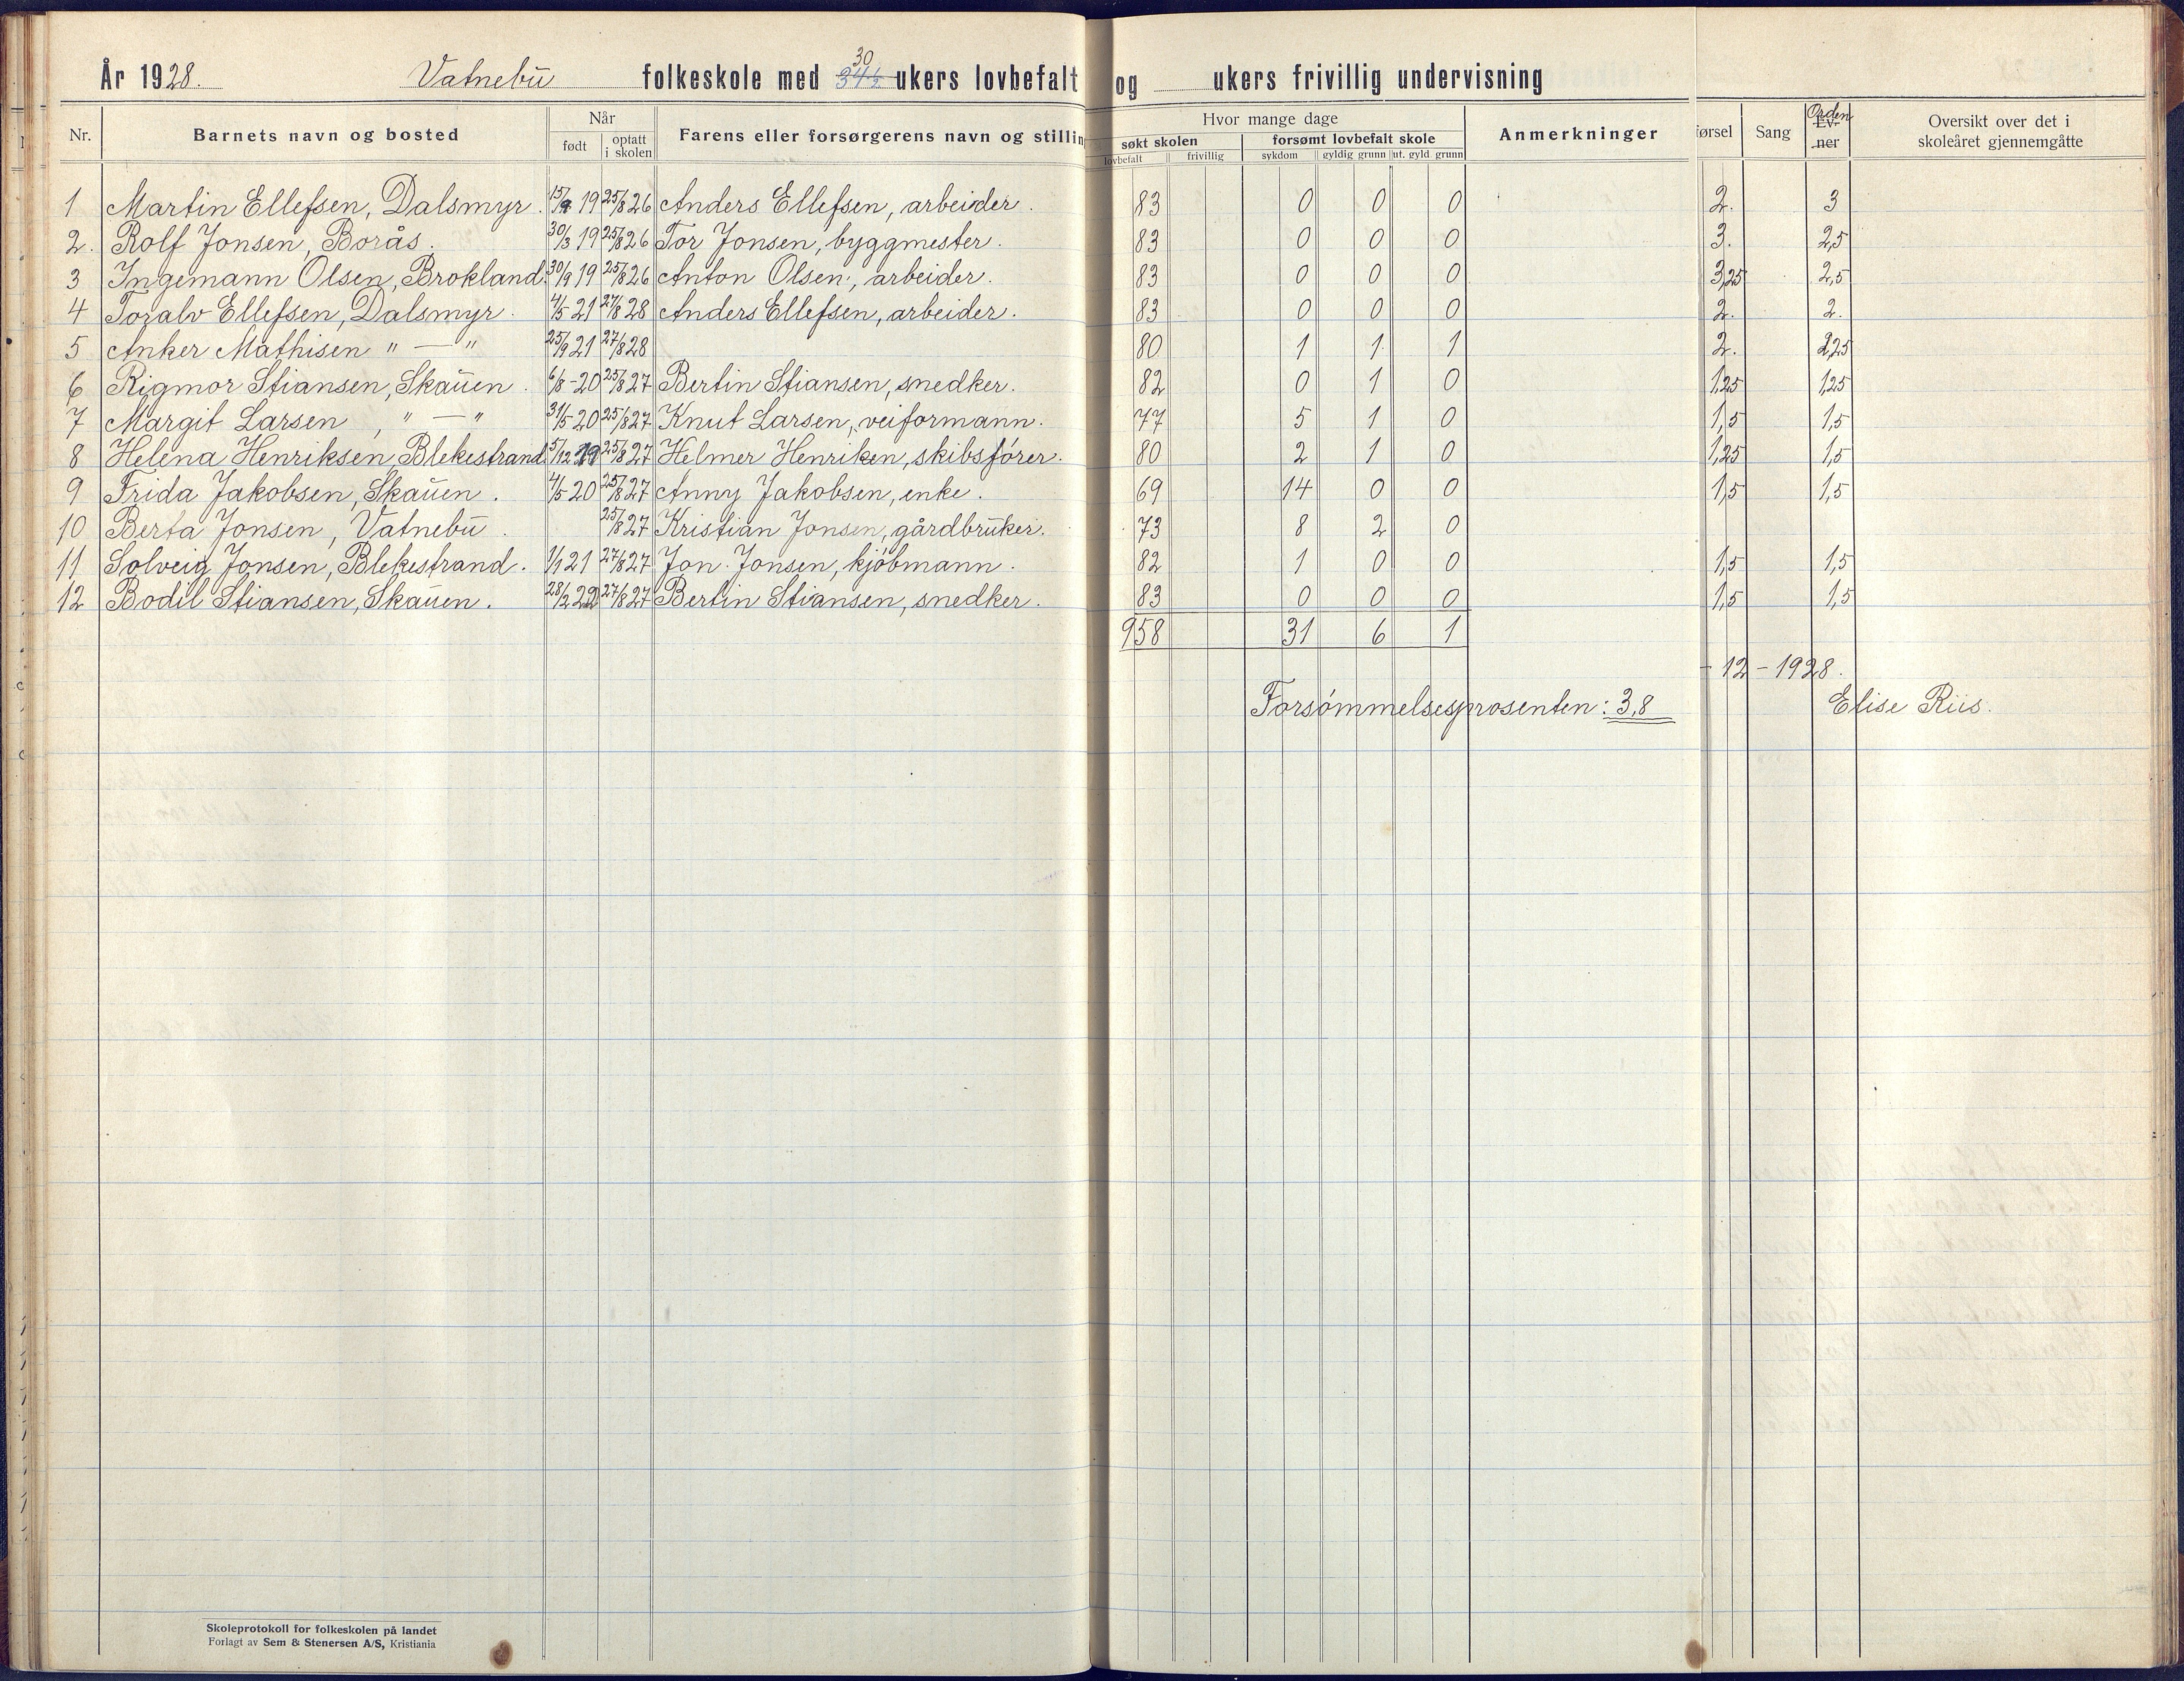 År 1928. Vatnebu folkeskole med 34½ 30 ukers lovbefalt og ukers frivillig undervisning
Nr. Barnets navn og bosted Når født optatt i skolen Farens eller forsørgerens navn og stilling Hvor mange dage søkt skolen lovbefalt frivillig forsømt lovbefalt skole sykdom gyldig grunn ut. gyld grunn Anmerkninger førsel Sang Ev-ner Orden Oversikt over det i skoleåret gjennemgåtte
1 Martin Ellefsen, Dalsmyr. 15/9 19 25/8 26 Anders Ellefsen, arbeider. 83 0 0 0 2. 3
2. Rolf Jonsen, Borås. 30/3 19 25/8 26 Tor Jonsen, byggmester. 83 0 0 0 3. 2,5
3 Ingemann Olsen, Brokland. 30/9 19 25/8 26 Anton Olsen, arbeider. 83 0 0 0 3,25 2,5
4 Toralv Ellefsen, Dalsmyr. 4/5 21 27/8 28 Anders Ellefsen, arbeider. 83 0 0 0 2. 2.
5 Anker Mathisen " — " 25/9 21 27/8 28 80 1 1 1 2. 2,25
6 Rigmor Stiansen, Skauen. 6/8-20 25/8 27 Bertin Stiansen, snedker. 82 0 1 0 1,25 1,25
7 Margit Larsen, " — " 31/5 20 25/8 27 Knut Larsen, veiformann. 77 5 1 0 1,5 1,5
8 Helena Henriksen, Blekestrand. 5/12 19 25/8 27 Helmer Henriken, skibsfører. 80 2 1 0 1,25 1,5
9 Frida Jakobsen, Skauen. 4/5 20 25/8 27 Anny Jakobsen, enke. 69 14 0 0 1,5 1,5
10 Berta Jonsen, Vatnebu. 25/8 27 Kristian Jonsen, gårdbruker. 73 8 2 0
11 Solveig Jonsen, Blekestrand. 1/1 21 27/8 27 Jon Jonsen, kjøbmann. 82 1 0 0 1,5 1,5
12 Bodil Stiansen, Skauen. 28/2 22 27/8 27 Bertin Stiansen, snedker. 83 0 0 0 1,5 1,5
958 31 6 1
- 12 - 1928.
Forsømmelsesprosenten: 3,8 Elise Riis.
Skoleprotokoll for folkeskolen på landet
Forlagt av Sem & Stenersen A/S, Kristiania